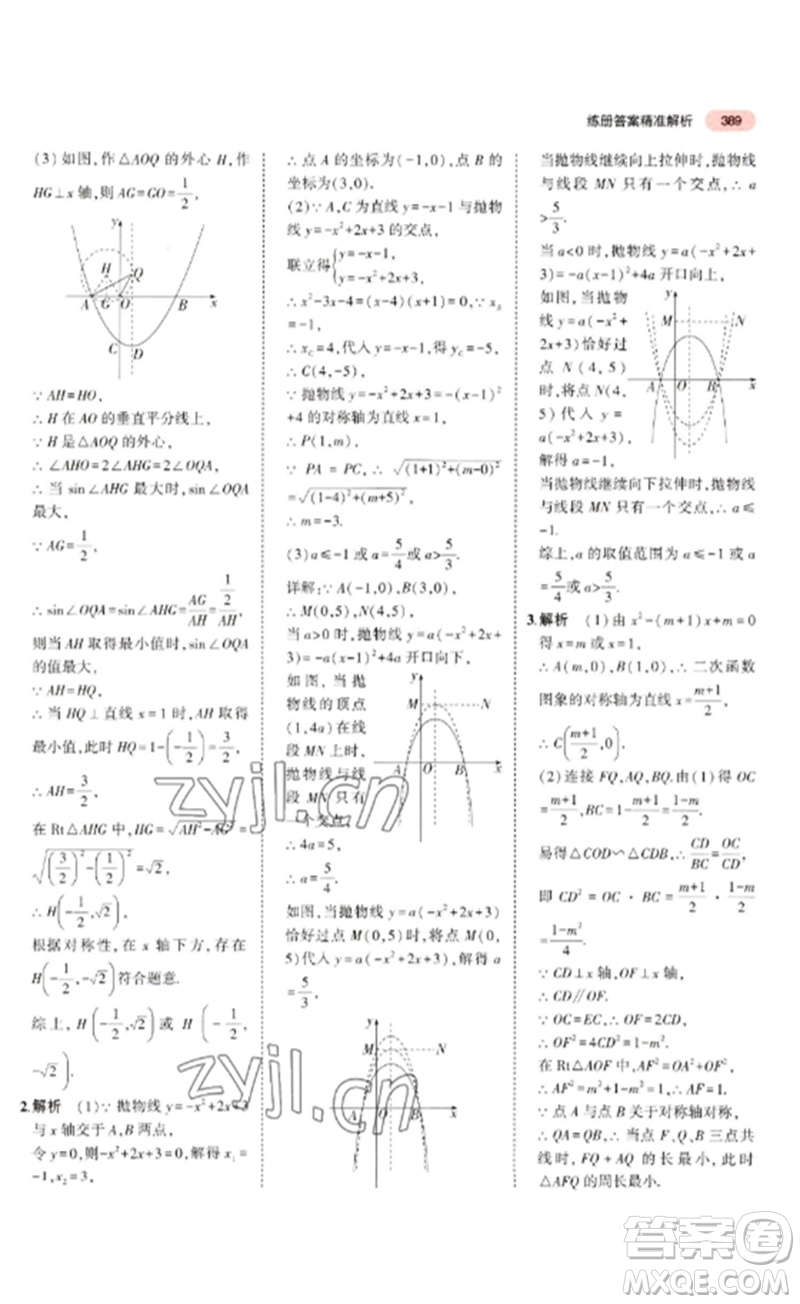 练册答案精准解析 389
(3)如图,作△AOQ 的外心 H,作
HG⊥x 轴,则 AG=GO=1/2,
y
H
Q
A G O B x
C D
∵ AH=HO,
∴ H 在 AO 的垂直平分线上,
∵ H 是△AOQ 的外心,
∴ ∠AHO=2∠AHG=2∠OQA,
∴ 当 sin∠AHG 最大时,sin∠OQA
最大,
∵ AG=1/2,
∴ sin∠OQA=sin∠AHG=AG/AH=(1/2)/AH,
则当 AH 取得最小值时,sin∠OQA
的值最大,
∵ AH=HQ,
∴ 当 HQ⊥直线 x=1 时,AH 取得
最小值,此时 HQ=1-(-1/2)=3/2,
∴ AH=3/2,
在 Rt△AHG 中,HG=√(AH²-AG²)=
√((3/2)²-(1/2)²)=√2,
∴ H(-1/2,√2).
根据对称性,在 x 轴下方,存在
H(-1/2,-√2)符合题意.
综上,H(-1/2,√2)或 H(-1/2,
-√2).
2.解析 (1)∵ 抛物线 y=-x²+2x+3
与 x 轴交于 A,B 两点,
令 y=0,则-x²+2x+3=0,解得 x₁=
-1,x₂=3,
∴ 点 A 的坐标为(-1,0),点 B 的
坐标为(3,0).
(2)∵ A,C 为直线 y=-x-1 与抛物
线 y=-x²+2x+3 的交点,
联立得{y=-x-1, y=-x²+2x+3,
∴ x²-3x-4=(x-4)(x+1)=0,∵ x_A
∴ x_C=4,代入 y=-x-1,得 y_C=-5,
∴ C(4,-5),
∵ 抛物线 y=-x²+2x+3=-(x-1)²
+4 的对称轴为直线 x=1,
∴ P(1,m),
∵ PA=PC,∴ √((1+1)²+(m-0)²)
=√((1-4)²+(m+5)²),
∴ m=-3.
(3)a≤-1 或 a=5/4 或 a>5/3.
详解:∵ A(-1,0),B(3,0),
∴ M(0,5),N(4,5),
当 a>0 时,抛物线 y=a(-x²+2x+
3)=-a(x-1)²+4a 开口向下,
如图,当抛
物线的顶点
(1,4a)在线
段 MN 上时,
抛物线与线
段 MN 只有
一个交点,
y
M N
A O B x
∴ 4a=5,
∴ a=5/4.
如图,当抛物线 y=a(-x²+2x+3)
恰好过点 M(0,5)时,将点 M(0,
5)代入 y=a(-x²+2x+3),解得 a
=5/3,
y
M N
A O B x
当抛物线继续向上拉伸时,抛物
线与线段 MN 只有一个交点,∴ a
>5/3.
当 a<0 时,抛物线 y=a(-x²+2x+
3)=-a(x-1)²+4a 开口向上,
如图,当抛物
线 y=a(-x²+
2x+3)恰好过
点 N(4,5)
时,将点 N(4,
5)代入 y=
a(-x²+2x+3),
解得 a=-1,
y
M N
A O B x
当抛物线继续向下拉伸时,抛物
线与线段 MN 只有一个交点,∴ a≤
-1.
综上,a 的取值范围为 a≤-1 或 a
=5/4或 a>5/3.
3.解析 (1)由 x²-(m+1)x+m=0
得 x=m 或 x=1,
∴ A(m,0),B(1,0),∴ 二次函数
图象的对称轴为直线 x=(m+1)/2,
∴ C((m+1)/2,0).
(2)连接 FQ,AQ,BQ,由(1)得 OC
=(m+1)/2,BC=1-(m+1)/2=(1-m)/2,
易得△COD∽△CDB,∴ CD/BC=OC/CD,
即 CD²=OC·BC=(m+1)/2·(1-m)/2=
(1-m²)/4.
∵ CD⊥x 轴,OF⊥x 轴,
∴ CD∥OF.
∵ OC=EC,∴ OF=2CD,
∴ OF²=4CD²=1-m².
在 Rt△AOF 中,AF²=OA²+OF²,
∴ AF²=m²+1-m²=1,∴ AF=1.
∵ 点 A 与点 B 关于对称轴对称,
∴ QA=QB,∴ 当 F,Q,B 三点共
线时,FQ+AQ 的长最小,此时
△AFQ 的周长最小.
zyjl.cn
zyjl.cn
答案圈
MXQE.COM